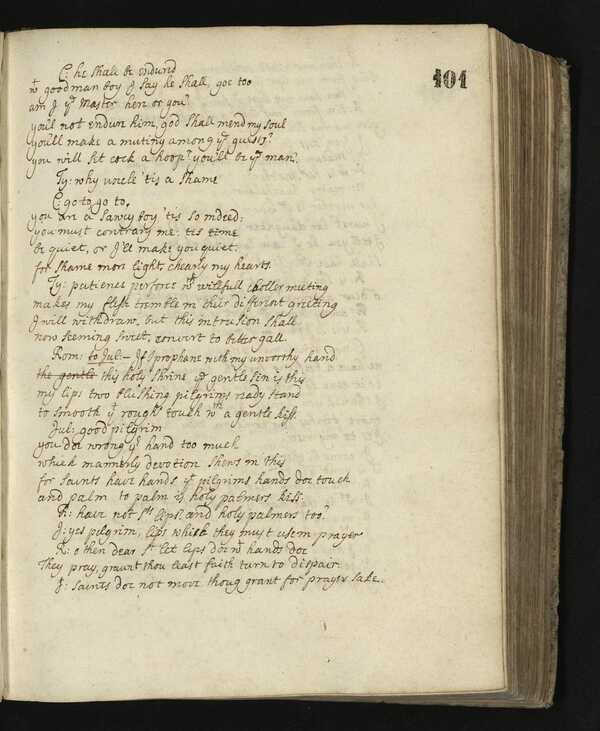 101
C: he shall be endurd
wt goodman boy I say he shall, goe too
am I ye Master here or you
youil not endure him, god shall mend my soul
you'll make a mutiny among ye guests?
you will set cock a hoop? you'll be ye man?
Ty: why uncle 'tis a shame
C: go to go to,
you are a sawcy boy 'tis so indeed:
you must contrary me: tis time
be quiet, or I'le make you quiet:
for shame more light, chearly my hearts.
Ty: patience perforce wth willfull choller meeting
makes my flesh tremble in their different greeting
I will withdraw, but this intrusion shall
now seeming sweet, convert to bitter gall.
Rom: to Jul:— If I prophane with my unworthy hand
the gentle this holy shrine ye gentle sin is this
my lips two blushing pilgrims ready stand
to smooth yt rough touch wth a gentle kiss.
Jul: good pilgrim
you doe wrong yr hand too much
which mannerly devotion shews in this
for saints have hands yt pilgrims hands doe touch
and palm to palm is holy palmers kiss.
R: have not Sts lips? and holy palmers too?
J: yes pilgrim, lips which they must use in prayer
R: o then dear St let lips doe wt hands doe
They pray, graunt thou least faith turn to dispair.
J: saints doe not move thoug grant for prayer sake.